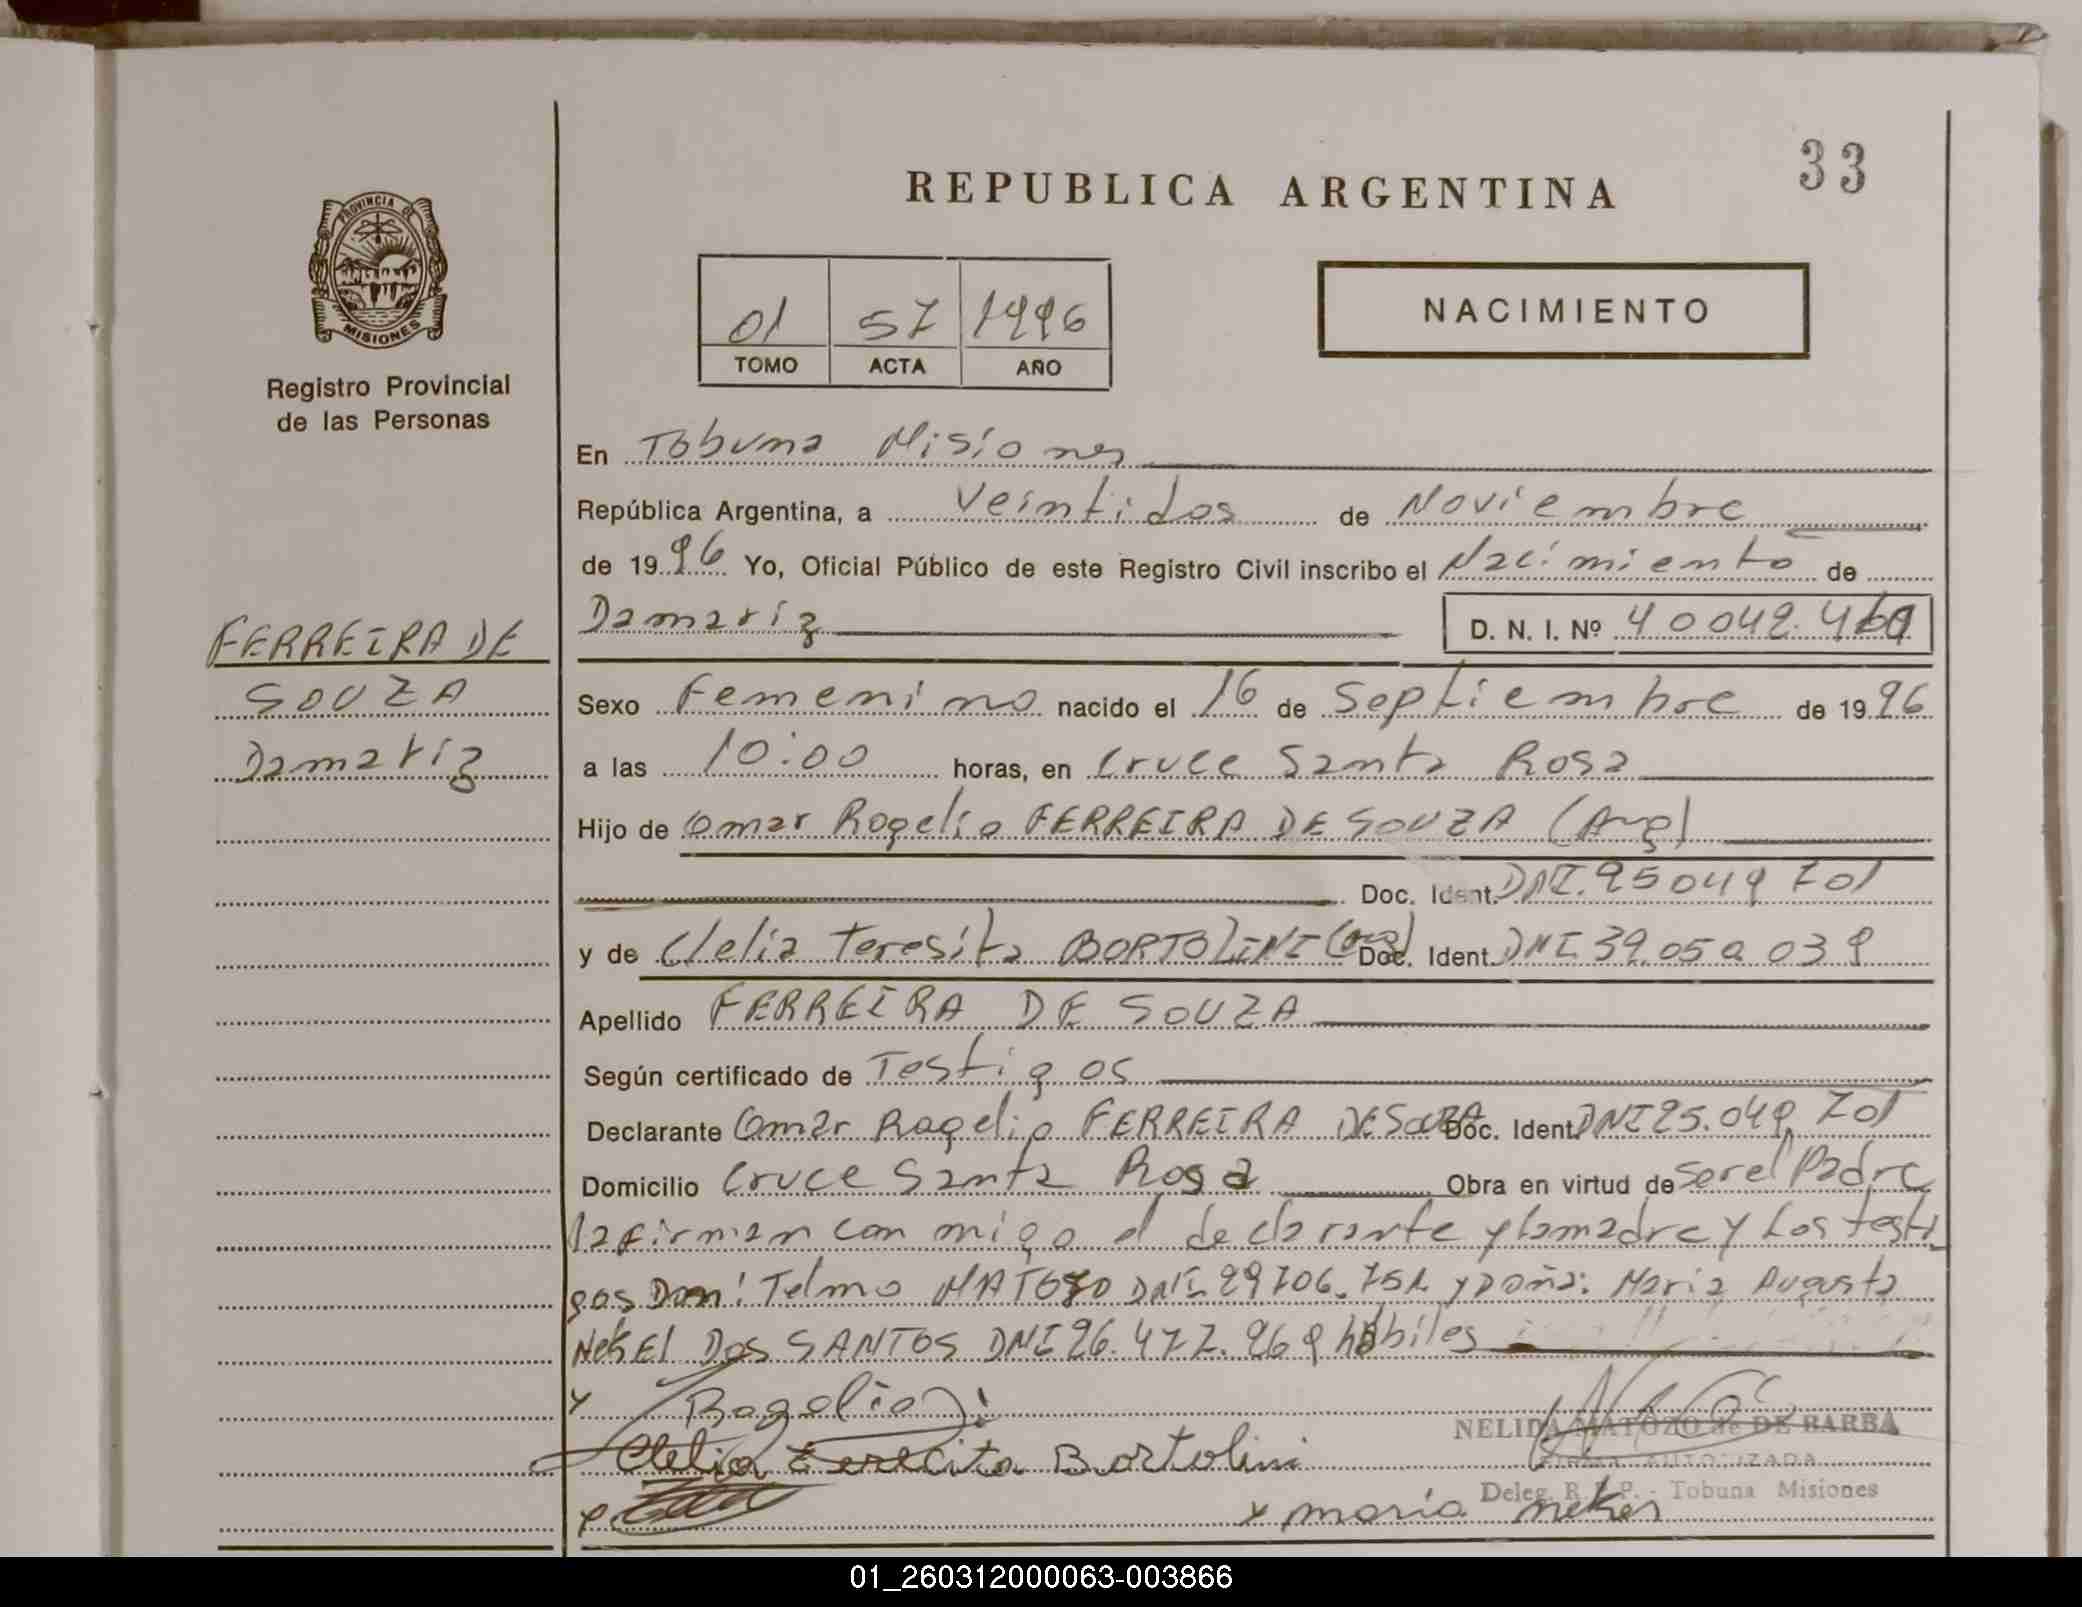 33
REPUBLICA ARGENTINA
PROVINCIA DE
MISIONES
Registro Provincial
de las Personas
01 57 1996
TOMO ACTA AÑO
NACIMIENTO
En Tobuna Misiones
República Argentina, a Veintidos de Noviembre
de 1996 Yo, Oficial Público de este Registro Civil inscribo el Nacimiento de
Damariz D. N. I. Nº 40042.
FERREIRA DE
SOUZA
Damariz
Sexo Femenino nacido el 16 de Septiembre de 1996
a las 10:00 horas, en Cruce Santa Rosa
Hijo de Omar Rogelio FERREIRA DE SOUZA (Arg)
Doc. Ident. DNI. 25049701
y de Clelia Teresita BORTOLINI (arg) Doc. Ident. DNI
Apellido FERREIRA DE SOUZA
Según certificado de Testigos
Declarante Omar Rogelio FERREIRA DE SOUZA Doc. Ident. DNI 25.049.701
Domicilio Cruce Santa Rosa Obra en virtud de ser el Padre
la firman con migo el declarante y la madre y Los testi
gos Don: Telmo MATOZO DNI 29706.751 y Doña: Maria Augusta
DOS SANTOS DNI 26.477.269 hábiles
Rogelio
Clelia terecita Bortolini
NELIDA MATOZO de DE BARBA
FIRMA AUTORIZADA
Deleg. R. P. P. - Tobuna Misiones
x maria neker
01_260312000063-003866